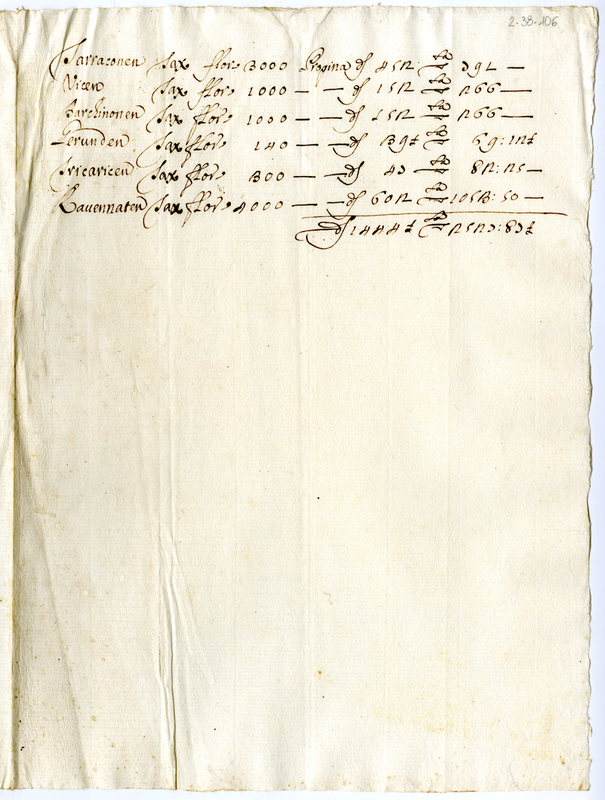 2-38-106
Tarraconen Tax flor 3000 Propina d 452 ∇ 791 —
Vicen Tax flor 1000 — — d 152 ∇ 266 —
Barchinonen Tax flor 1000 — — d 152 ∇ 266 —
Gerunden Tax flor 140 — — d 39½ ∇ 69:12½
Tricaricen Tax flor 300 — — d 47 — ∇ 82:25 —
Ravennaten Tax flor 4000 — — d 602 ∇ 1053:50 —
d 1444½ ∇ 2527:87½